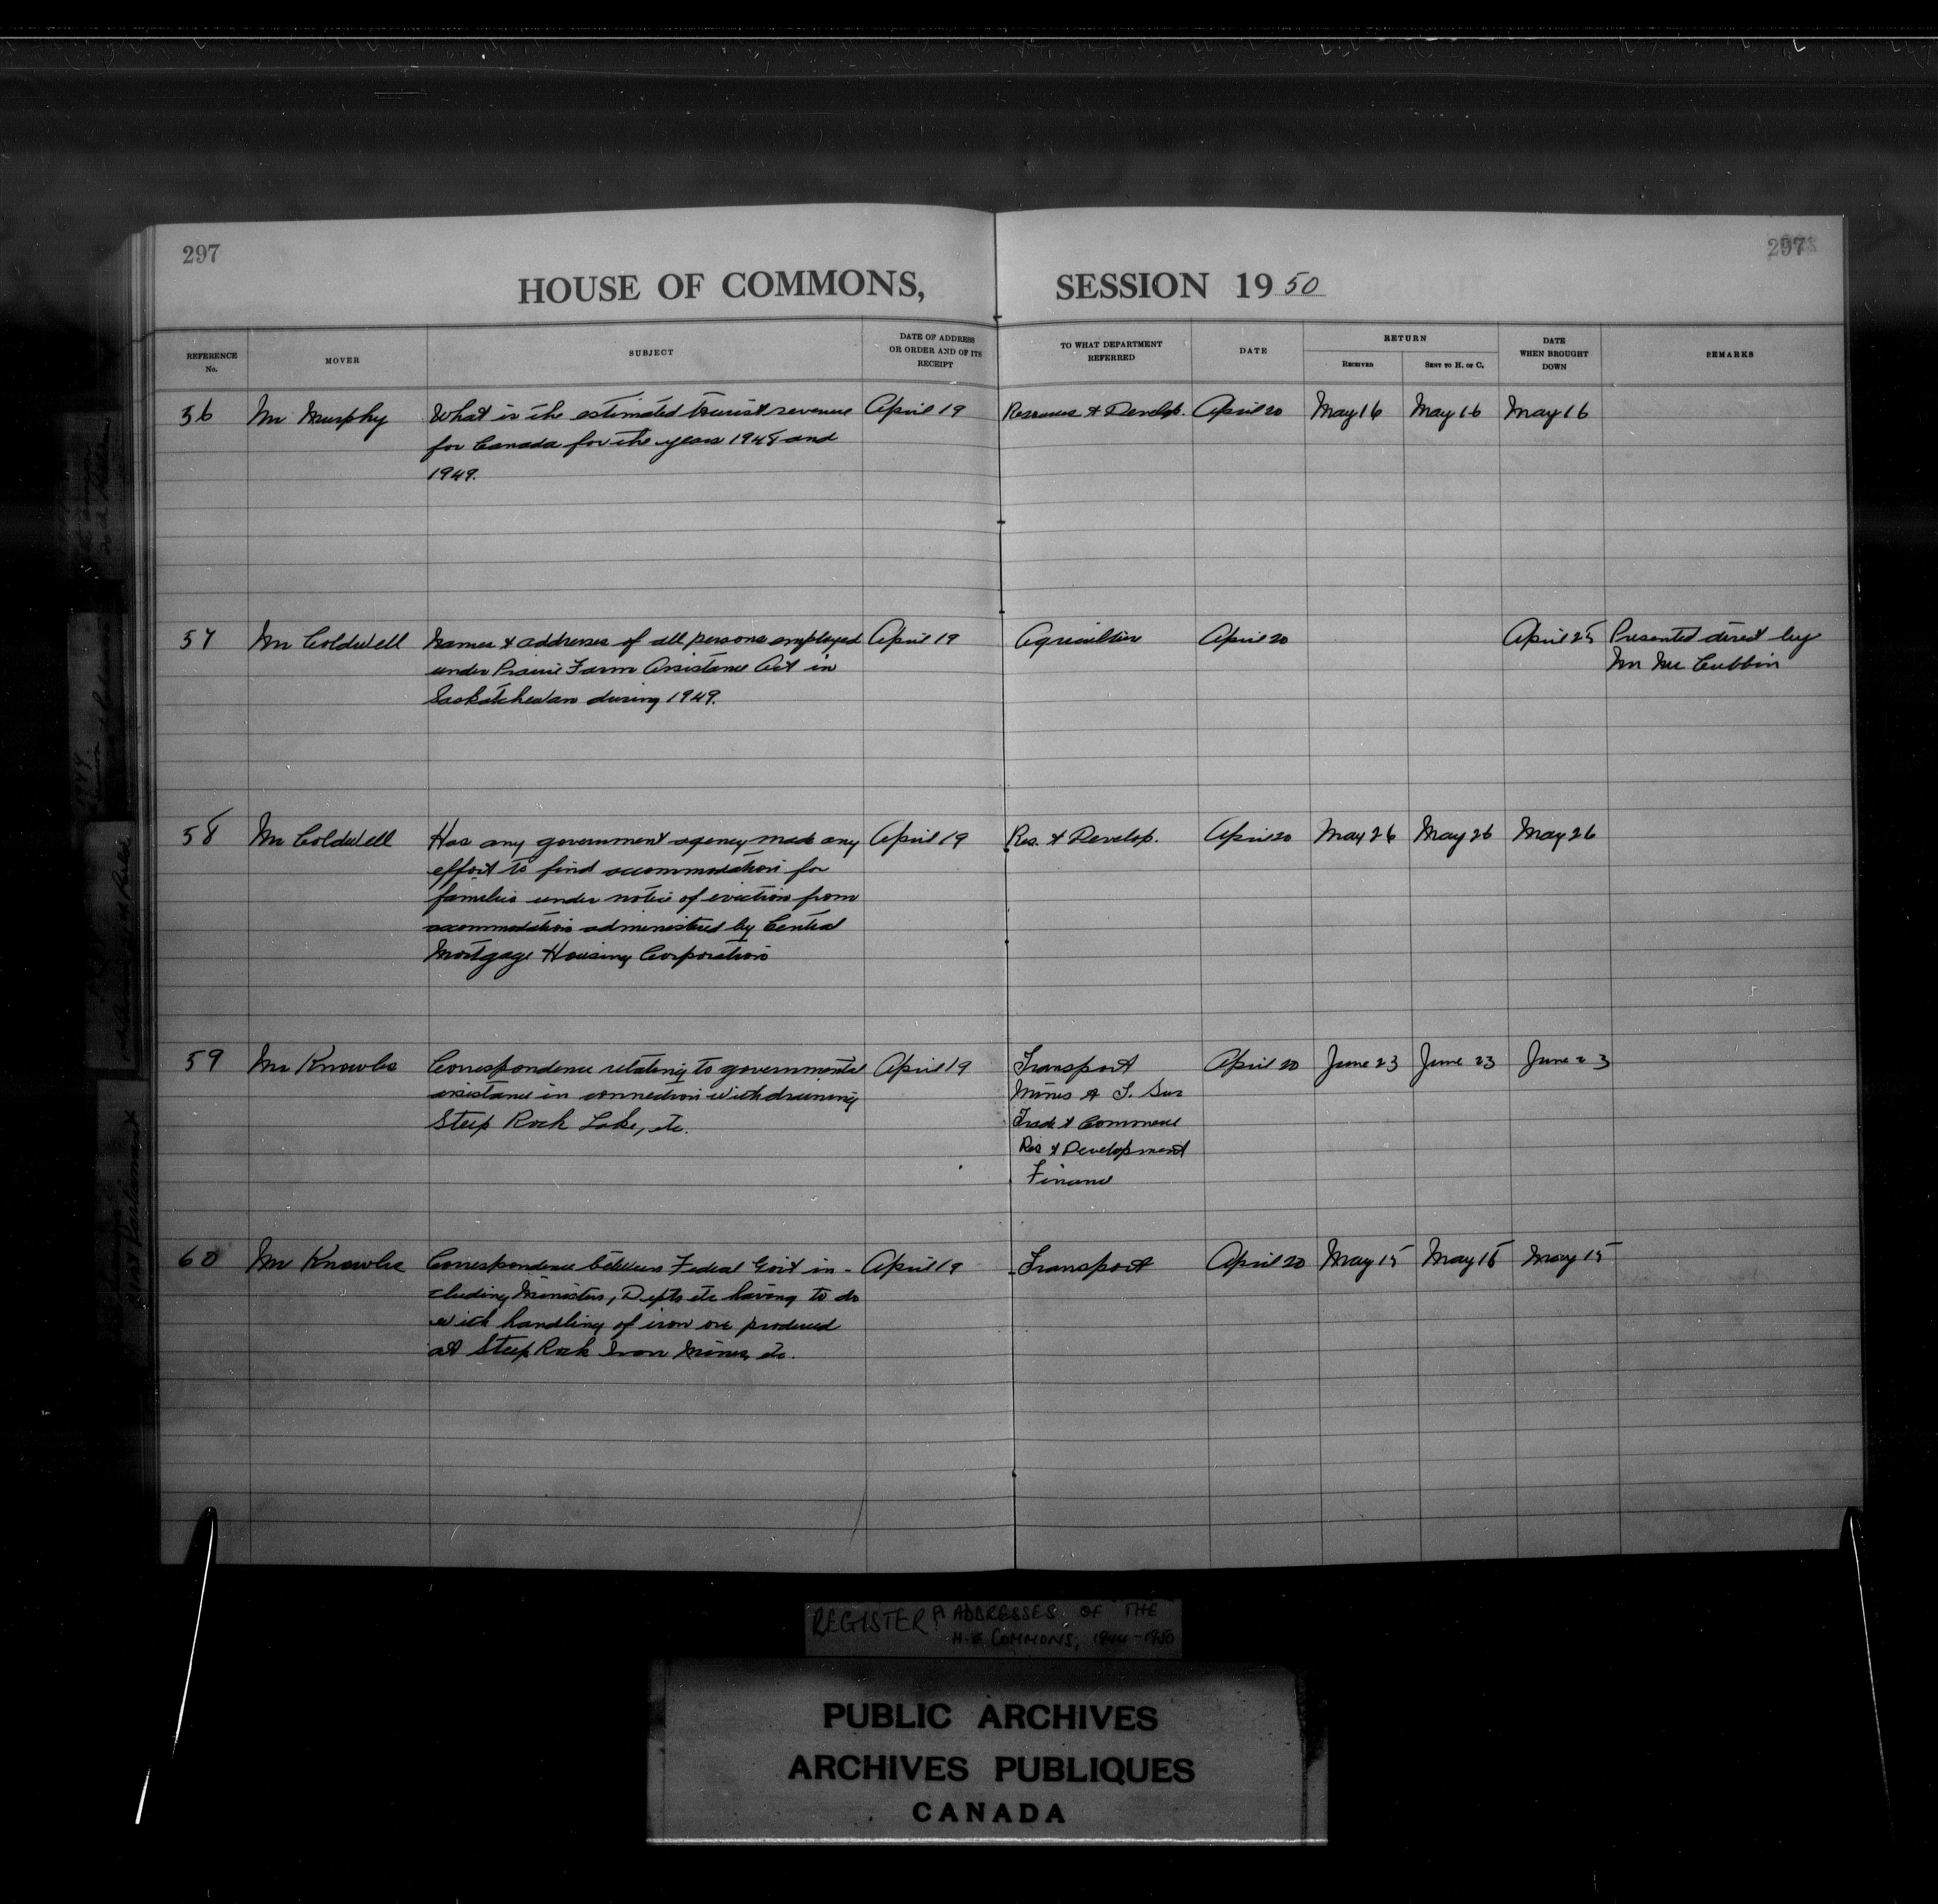 297
297
HOUSE OF COMMONS, SESSION 1950
REFERENCE No.
MOVER
SUBJECT
DATE OF ADDRESS OR ORDER AND OF ITS RECEIPT
TO WHAT DEPARTMENT REFERRED
DATE
RETURN
RECEIVED
SENT TO H. OF C.
DATE WHEN BROUGHT DOWN
REMARKS
56 Mr Murphy What is the estimated tourist revenue April 19 Resources & Develop. April 20 May 16 May 16 May 16
for Canada for the years 1948 and
1949.
57 Mr Coldwell Names & addresses of all persons employed April 19 Agriculture April 20 April 25 Presented direct by
under Prairie Farm Assistance Act in Mr Mc Cubbin
Saskatchewan during 1949.
58 Mr Coldwell Has any government agency made any April 19 Res. & Develop. April 20 May 26 May 26 May 26
effort to find accommodation for
families under notice of eviction from
accommodation administered by Central
Mortgage Housing Corporation
59 Mr Knowles Correspondence relating to governmental April 19 Transport April 20 June 23 June 23 June 23
assistance in connection with draining Mines & T. Sur
Steep Rock Lake, etc. Trade & Commerce
Res & Development
Finance
60 Mr Knowles Correspondence between Federal Govt in- April 19 Transport April 20 May 15 May 15 May 15
cluding Ministers, Depts etc having to do
with handling of iron ore produced
at Steep Rock Iron Mines, etc.
REGISTER ADDRESSES OF THE
H. of COMMONS, 1944-1950
PUBLIC ARCHIVES
ARCHIVES PUBLIQUES
CANADA